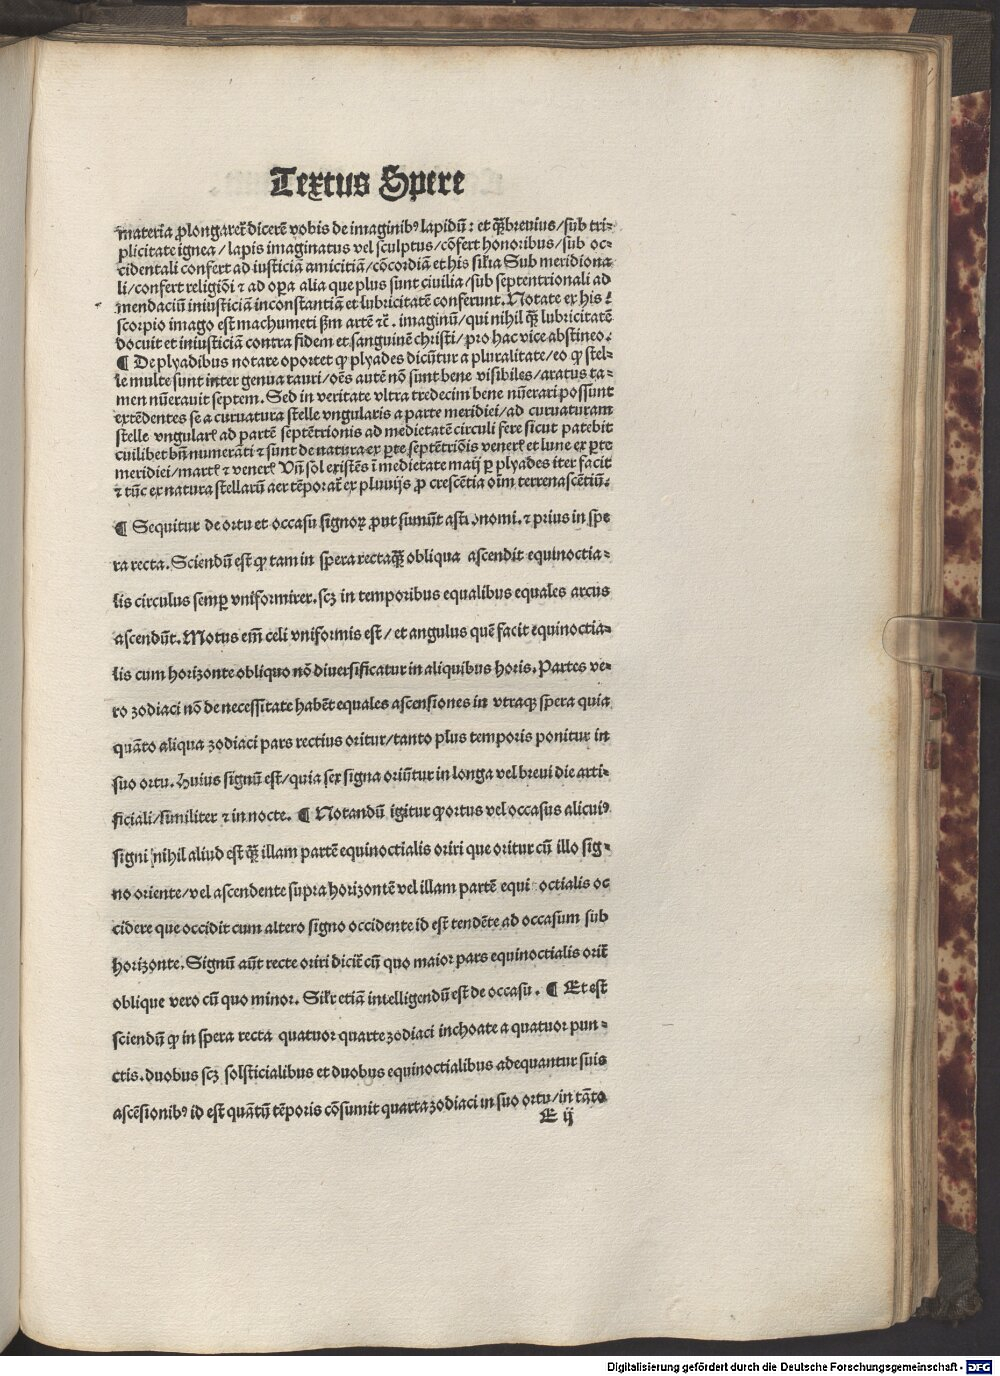 Textus Spere
materia ꝓlongaret̃ dicerē vobis de imaginibꝰ lapidū: et q̄ꝫ breuius/sub tri⸗
plicitate ignea/lapis imaginatus vel sculptus/cōfert honoribus/sub oc⸗
cidentali confert ad iusticiā amicitiā/cōcordiā et his silia Sub meridiona
li/confert religiōi ⁊ ad oꝑa alia que plus sunt ciuilia/sub septentrionali ad
mendaciū iniusticiā inconstantiā et lubricitatē conferunt. Notate ex his :
scorpio imago est machumeti ẜm artē ⁊c̄. imaginū/qui nihil q̄ꝫ lubricitatē
docuit et iniusticiā contra fidem et sanguinē christi/pro hac vice abstineo.
¶ De plyadibus notare oportet ꝙ plyades dicūtur a pluralitate/eo ꝙ stel⸗
le multe sunt inter genua tauri/oēs autē nō sunt bene visibiles/aratus ta⸗
men nūerauit septem. Sed in veritate vltra tredecim bene nūerari possunt
extēdentes se a curuatura stelle vngularis a parte meridiei/ad curuaturam
stelle vngularꝭ ad partē septētrionis ad medietatē circuli fere sicut patebit
cuilibet bn̄ numerāti ⁊ sunt de natura ex ꝑte septētriōis venerꝭ et lune ex ꝑte
meridiei/martꝭ ⁊ venerꝭ Vn̄ sol existēs ī medietate maij ꝑ plyades iter facit
⁊ tūc ex natura stellarū aer tēporat̃ ex pluuijs ꝓ crescētia oīm terrenascētiū.
¶ Sequitur de ortu et occasu signoꝝ ꝓut sumūt astronomi. ⁊ prius in spe
ra recta. Sciendū est ꝙ tam in spera recta q̄ꝫ obliqua ascendit equinoctia⸗
lis circulus semꝑ vniformiter. scꝫ in temporibus equalibus equales arcus
ascendūt. Motus em̄ celi vniformis est/et angulus quē facit equinoctia⸗
lis cum horizonte obliquo nō diuersificatur in aliquibus horis. Partes ve⸗
ro zodiaci nō de necessitate habēt equales ascensiones in vtraqꝫ spera quia
quāto aliqua zodiaci pars rectius oritur/tanto plus temporis ponitur in
suo ortu. Huius signū est/quia sex signa oriūtur in longa vel breui die arti⸗
ficiali/similiter ⁊ in nocte. ¶ Notandū igitur ꝙ ortus vel occasus alicuiꝰ
signi nihil aliud est q̄ꝫ illam partē equinoctialis oriri que oritur cū illo sig⸗
no oriente/vel ascendente supra horizontē vel illam partē equi octialis oc
cidere que occidit cum altero signo occidente id est tendēte ad occasum sub
horizonte. Signū aūt recte oriri dicit̃ cū quo maior pars equinoctialis orit̃
oblique vero cū quo minor. Silr̄ etiā intelligendū est de occasu. ¶ Et est
sciendū ꝙ in spera recta quatuor quarte zodiaci inchoate a quatuor pun⸗
ctis. duobus scꝫ solsticialibus et duobus equinoctialibus adequantur suis
ascēsionibꝰ id est quātū tēporis cōsumit quarta zodiaci in suo ortu/in tāto
E ij
Digitalisierung gefördert durch die Deutsche Forschungsgemeinschaft - DFG